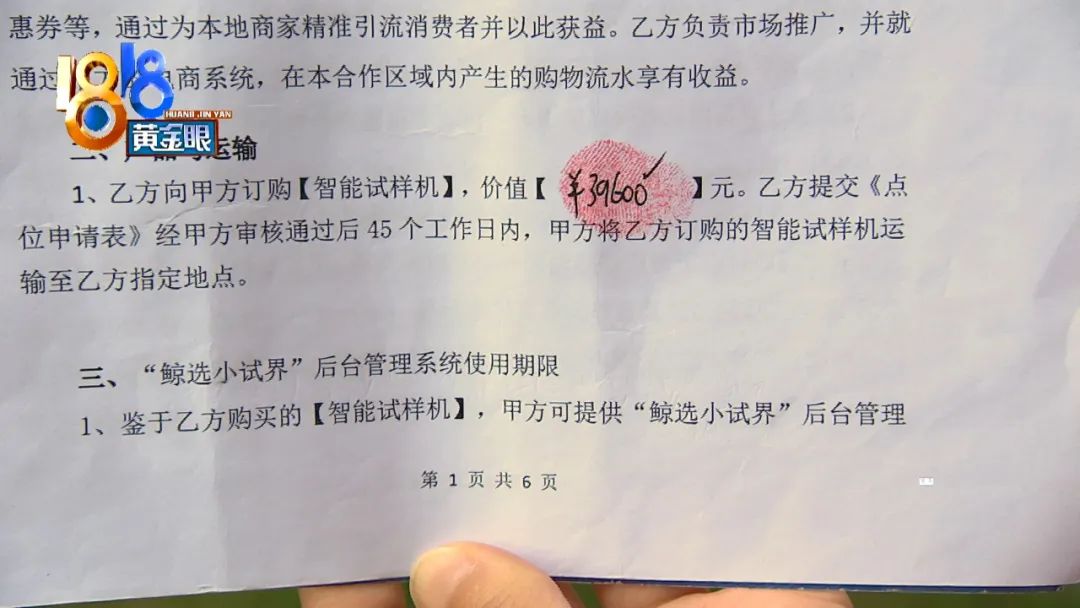 惠券等，通过为本地商家精准引流消费者并以此获益。乙方负责市场推广，并就
通过 电商系统，在本合作区域内产生的购物流水享有收益。
1818
HUANG JIN YAN
黄金眼
二、产品与运输
1、乙方向甲方订购【智能试样机】，价值【¥39600】元。乙方提交《点
位申请表》经甲方审核通过后 45 个工作日内，甲方将乙方订购的智能试样机运
输至乙方指定地点。
三、“鲸选小试界”后台管理系统使用期限
1、鉴于乙方购买的【智能试样机】，甲方可提供“鲸选小试界”后台管理
第 1 页 共 6 页